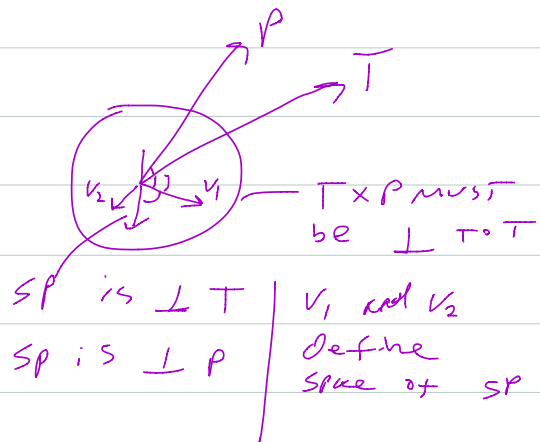 P
T
V2
V1
T x P must
be ⊥ to T
SP is ⊥ T
V1 and V2
SP is ⊥ P
define
space of SP